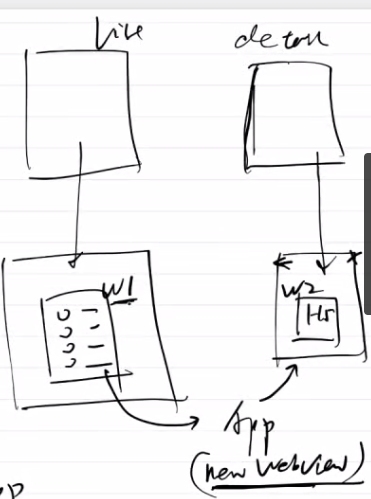 list
detail
W1
W2
H5
App
(new Webview)